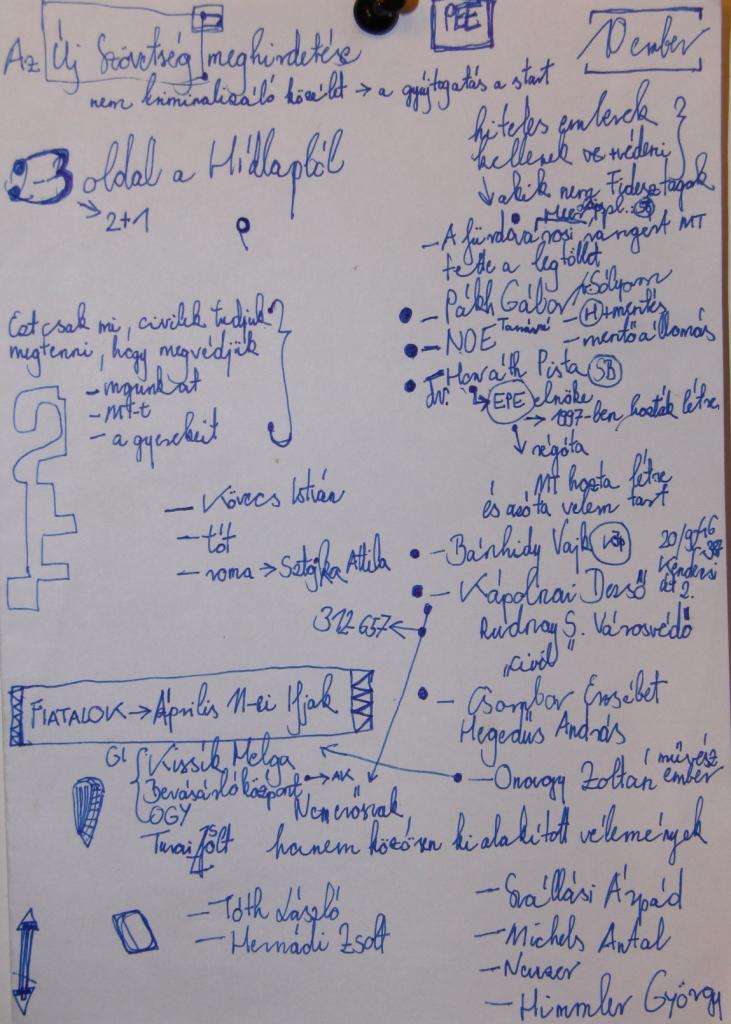 PEE
10 ember
Az Új Szövetség meghirdetése
nem kriminalizáló közélet → a gyújtogatás a start
2-3 oldal a Hídlapból
→ 2+1
hiteles emberek
kellenek
akik nem Fidesz tagok
- A fürdővárosi rangért MT
tette a legtöbbet
- Pákh Gábor
Sólyom
- NOE Tamásné
- H+mentés
- mentőállomás
- Horváth Pista SB
dr. → EPE elnöke
→ 1997-ben hozták létre
↓ régóta
MT hozta létre
és azóta velem tart
Ezt csak mi, civilek tudjuk
megtenni, hogy megvédjük
- magunkat
- MT-t
- a gyerekeit
- Kövecs István
- tót
- roma → Sztojka Attila
- Bánhidy Vajk
20/9
- Kápolnai Dezső
út 2.
312-657 ←
Rudnay S. Városvédő
"civil"
- Csombor Erzsébet
Hegedűs András
- Onagy Zoltán művész
ember
FIATALOK → Április 11-ei Ifjak
GI
Kissik Helga
Bevásárlóközpont → AK
OGY
Turai Zsolt
Nem erősrak
hanem közösen kialakított vélemények
- Tóth László
- Hernádi Zsolt
- Szállási Árpád
- Michels Antal
- Neuzer
- Himmler György